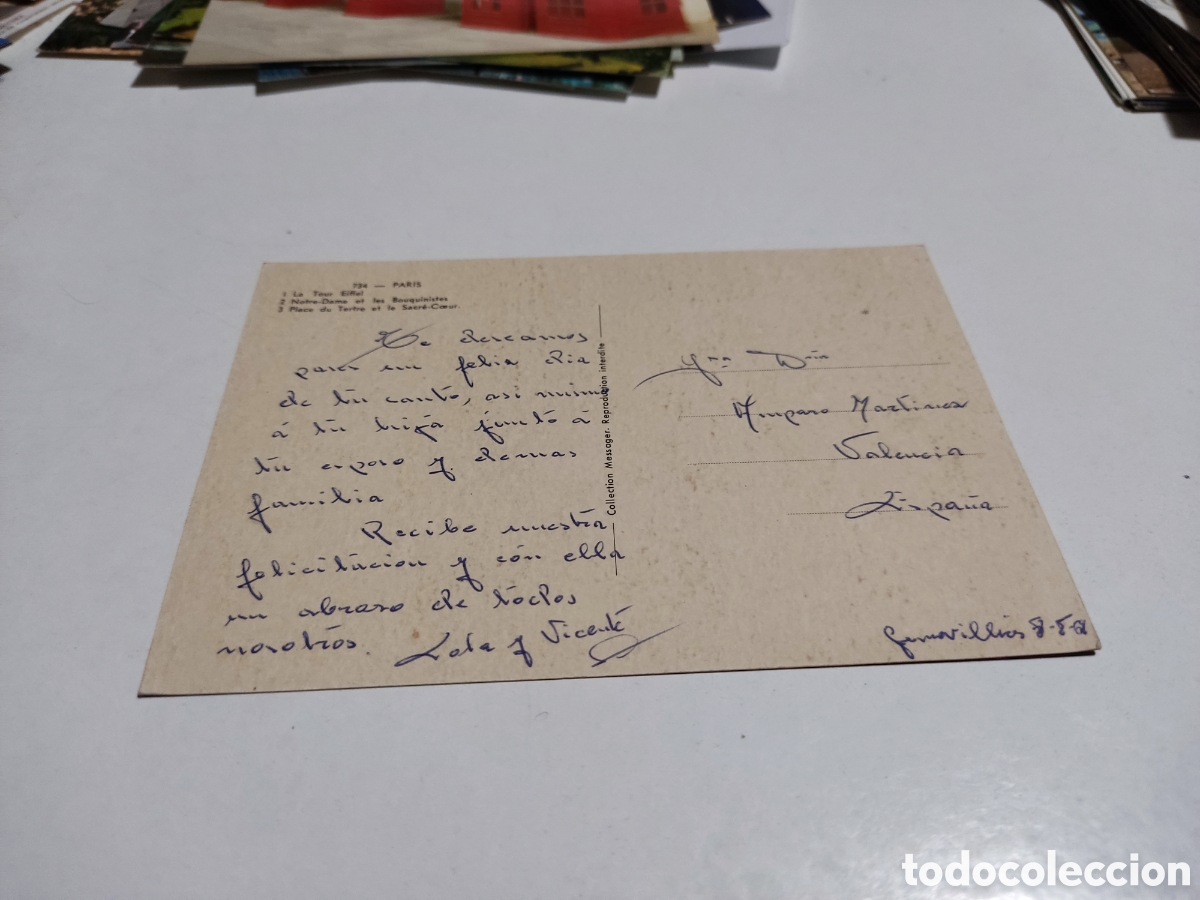 734 — PARIS
1 La Tour Eiffel
2 Notre-Dame et les Bouquinistes
3 Place du Tertre et le Sacré-Cœur.
Te deseamos
pases un feliz dia
de tu santo, asi mismo
á tu hija junto á
tu esposo y demas
familia
Recibe nuestra
felicitacion y con ella
un abrazo de todos
nosotros. Lola y Vicente
Collection Messager. Reproduction interdite
Amparo Martinez
Valencia
España
8-5-61
todocoleccion